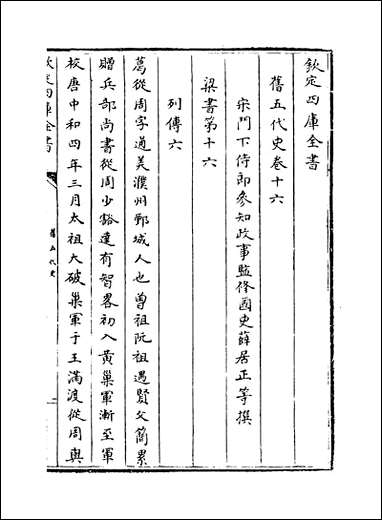 欽定四庫全書
舊五代史卷十六
宋門下侍郎參知政事監修國史薛居正等撰
梁書第十六
列傳六
葛從周字通美濮州鄄城人也曾祖阮祖遇賢父簡累
贈兵部尚書從周少豁達有智畧初入黃巢軍漸至軍
校唐中和四年三月太祖大破巢軍于王滿渡從周與
欽定四庫全書
舊五代史